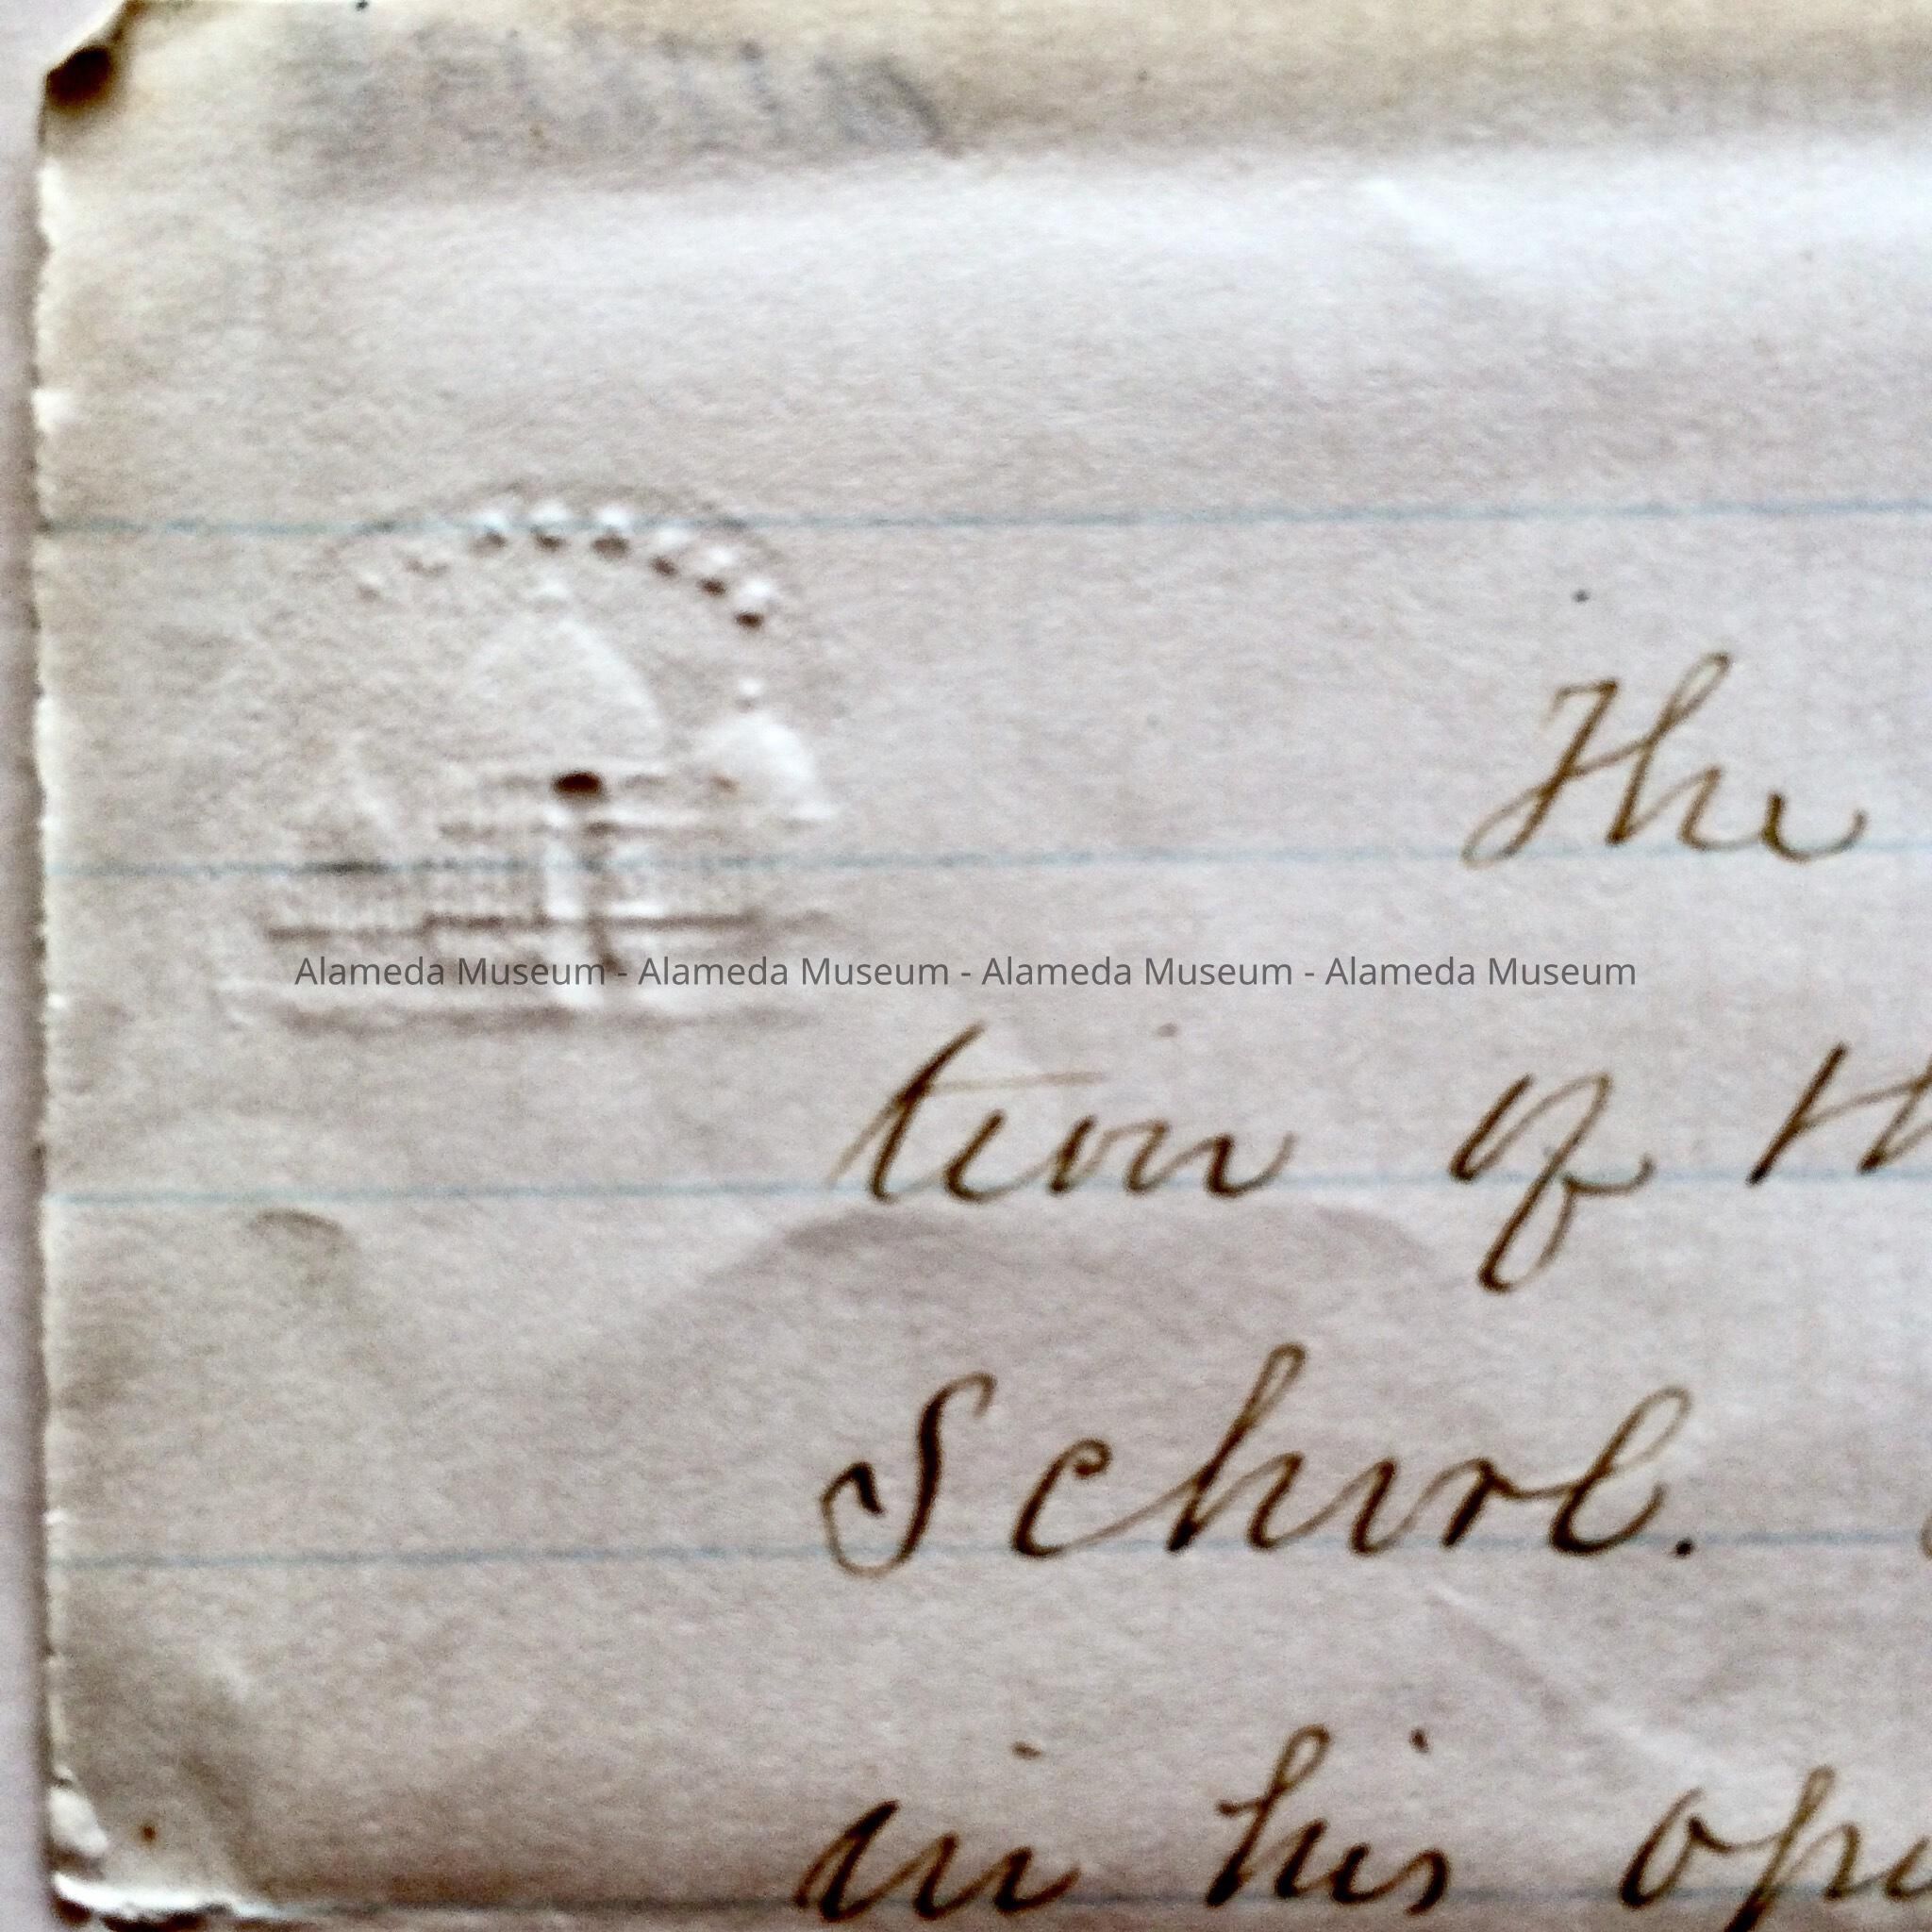 The
Alameda Museum - Alameda Museum - Alameda Museum - Alameda Museum
tion of th
School.
in his opi